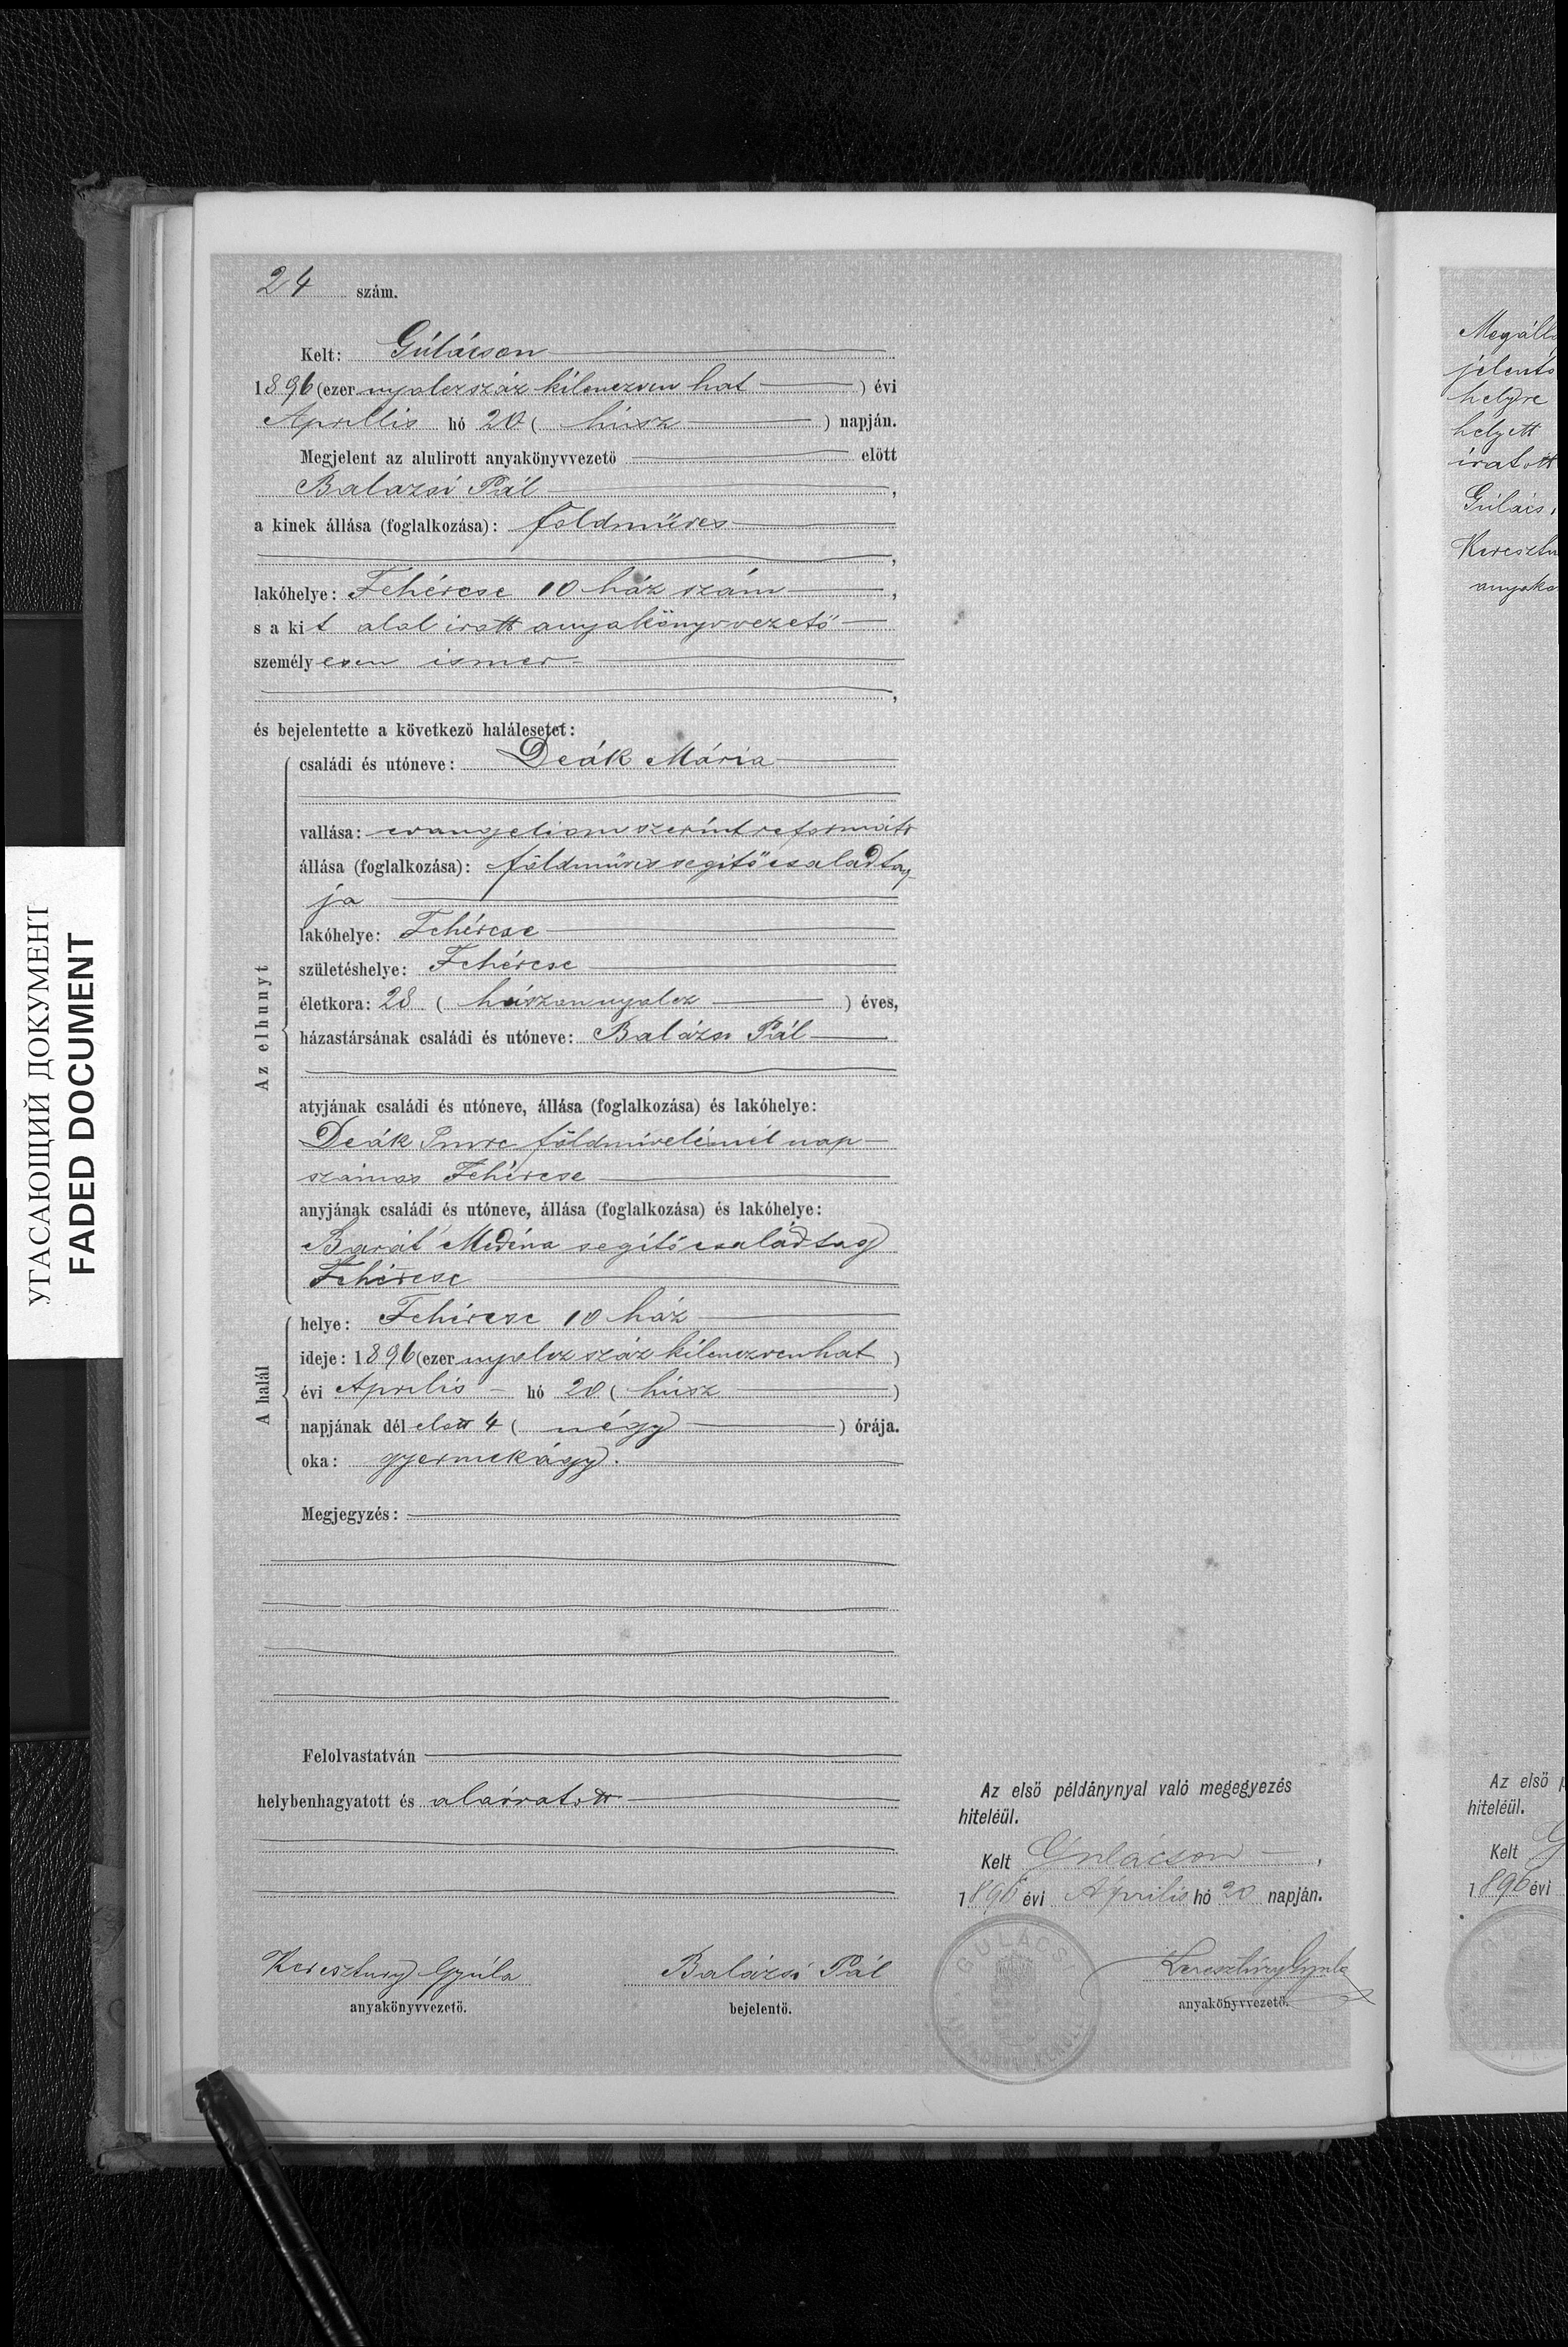 24 szám.
Kelt: Gúlácson
1896 (ezer nyolczszáz kilenczven hat) évi
Aprillis hó 20 ( húsz ) napján.
Megjelent az alulirott anyakönyvvezető előtt
Balazsi Pál,
a kinek állása (foglalkozása): földműves
,
lakóhelye: Fehércse 10 ház szám,
s a kit alol iratt anyakönyvvezető
személyesen ismer
,
és bejelentette a következő halálesetet:
Az elhunyt
családi és utóneve: Deák Mária
vallása: evangeliom szerint reformáts
állása (foglalkozása): földműves segitő csaladtag
ja
lakóhelye: Fehércse
születéshelye: Fehércse
életkora: 28 ( húszonnyolcz ) éves,
házastársának családi és utóneve: Balázsi Pál
atyjának családi és utóneve, állása (foglalkozása) és lakóhelye:
Deák Imre földmivelésnél nap-
számos Fehércse
anyjának családi és utóneve, állása (foglalkozása) és lakóhelye:
Barát segitő családtag
Fehércse
A halál
helye: Fehércse 10 ház
ideje: 1896 (ezer nyolcz száz kilenczvenhat )
évi Aprilis hó 20 ( húsz )
napjának dél elott 4 ( négy ) órája.
oka: gyermekágy.
Megjegyzés:
Felolvastatván
helybenhagyatott és aláiratott
Keresztury Gyúla
anyakönyvvezető.
Balázsi Pál
bejelentő.
Az első példánynyal való megegyezés
hiteléül.
Kelt Gulácson,
1896 évi Április hó 20 napján.
GULÁCSI
Keresztúry Gyula
anyakönyvvezető.
Megáll
jelentő
helyre
helyett
iratott
Gúlács,
Keresztu
anyakö
Az első p
hiteléül.
Kelt G
1896 évi
УГАСАЮЩИЙ ДОКУМЕНТ
FADED DOCUMENT